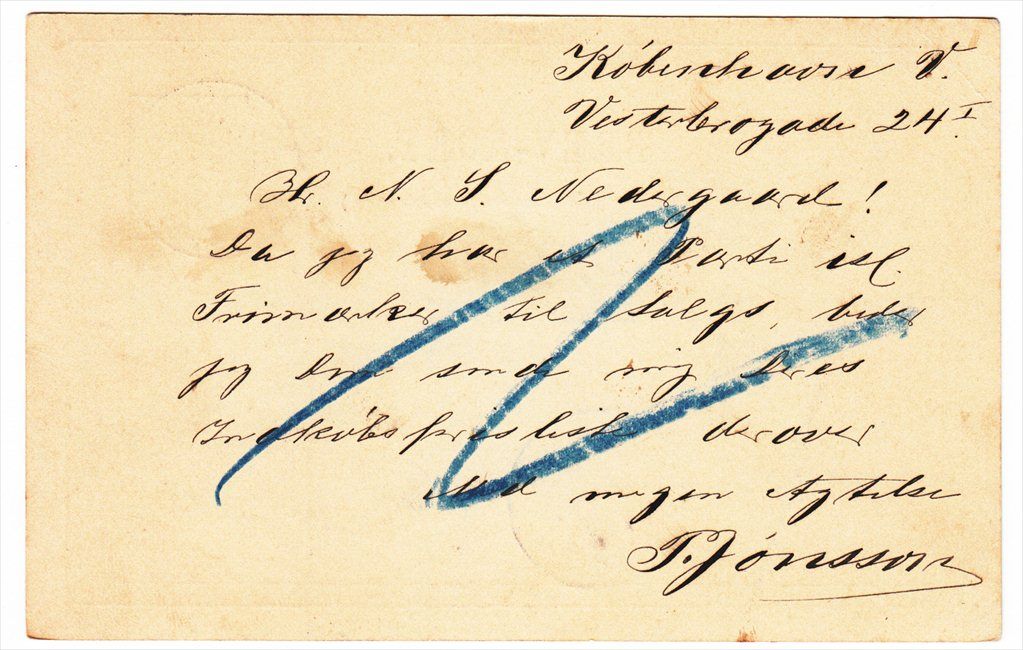 København V.
Vesterbrogade 24 I.
Hr. N. S. Nedergaard!
Da jeg har et Parti isl.
Frimærker til Salgs, beder
jeg Dem sende mig Deres
Indkøbsprisliste derover
Med megen Agtelse
T. Jónsson